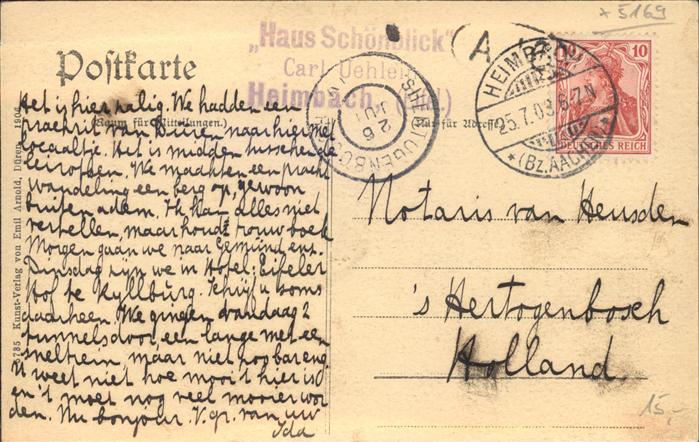 * 5169
"Haus Schönblick"
Carl
Heimbach, (Eifel)
Postkarte
(Raum für Mitteilungen.)
(Nur für Adresse)
HEIMBACH
25.7.08.6-7N
*(Bz.AACHEN)*
10
DEUTSCHES REICH
'SHERTOGENBOSCH
26
JUL
A
Het is hier zalig. We hadden een
prachrit van Düren naar hier met
locaaltje. Het is midden tusschen de
Eifel We maakten een pracht
wandeling een berg op, gewoon
buiten adem. Ik kan alles niet
vertellen, maar houdt trouw boek
Morgen gaan we naar Gemünd enz.
Dinsdag zijn we in Hotel: Eifeler
Hof te Kyllburg. Schrijf u soms
daarheen. We gingen vandaag 2
tunnels door, een lange met een
sneltrein, maar niet nog bar eng.
U weet niet hoe mooi 't hier is
en 't moet nog veel mooier wor
den. Nu bonjour. V. gr. van uw
Ida
Notaris van Heusden
's Hertogenbosch
Holland.
5785 Kunst-Verlag von Emil Arnold, Düren, 1904
15,-